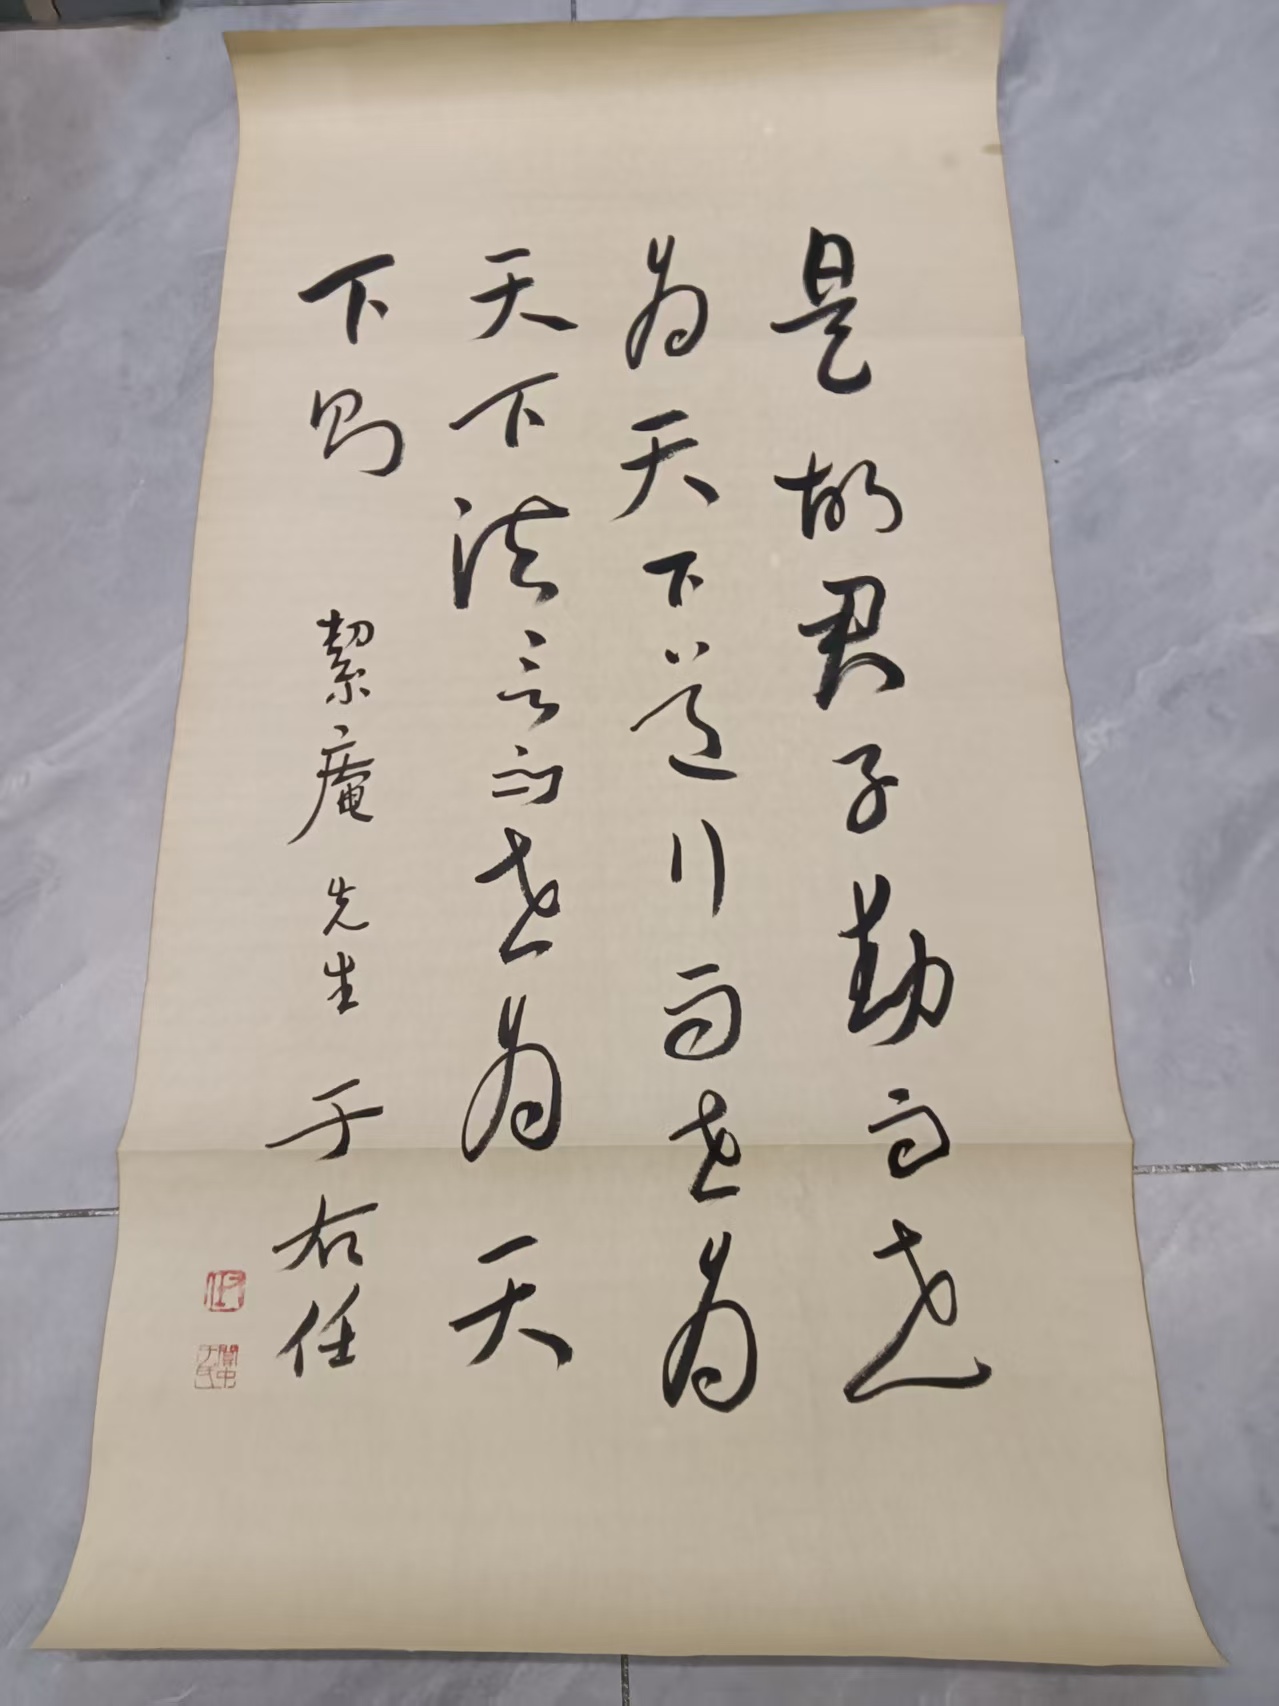 是故君子動而世
為天下道行而世為
天下法言而世為天
下則 絜庵先生 于右任
關中于氏